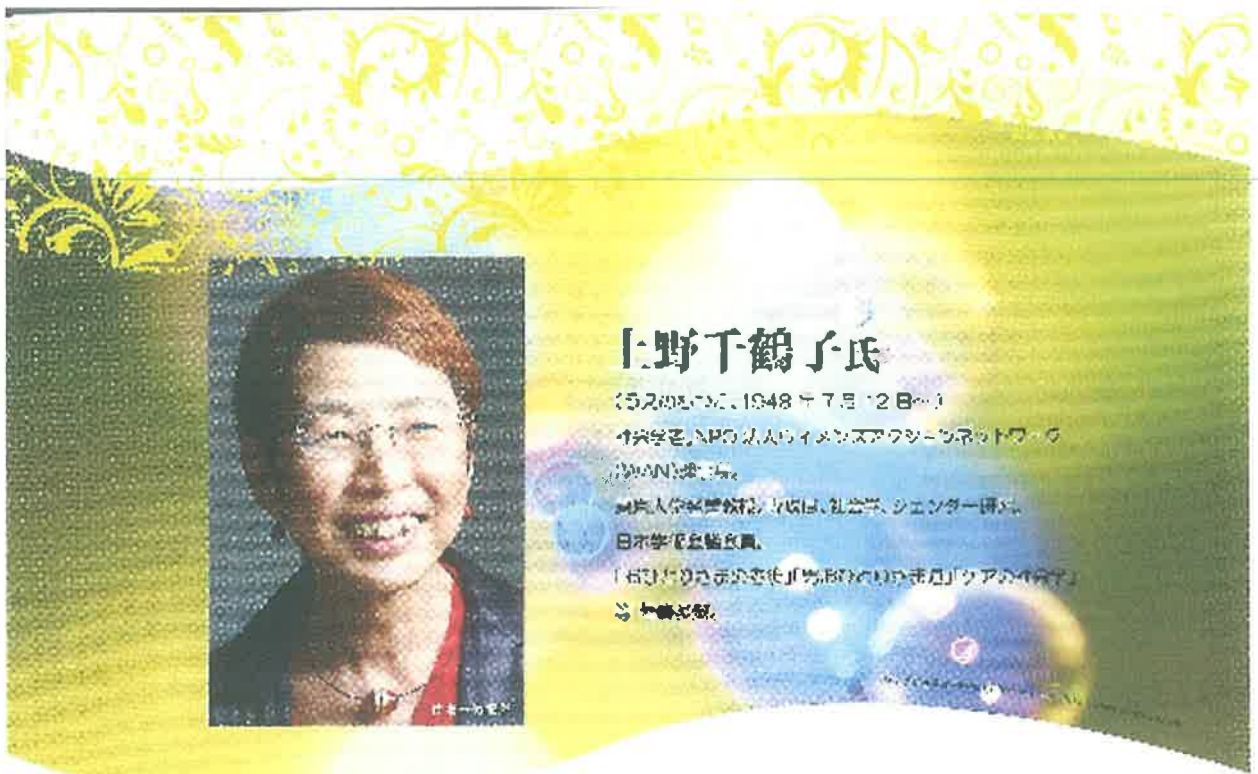 上野千鶴子氏
(うえのちづこ、1948年7月12日~)
社会学者、NPO法人ウィメンズアクションネットワーク
(WAN)理事長。
東京大学名誉教授。専門は、社会学、ジェンダー研究。
日本学術会議会員。
『おひとりさまの老後』『男おひとりさま道』『ケアの社会学』
など 著書多数